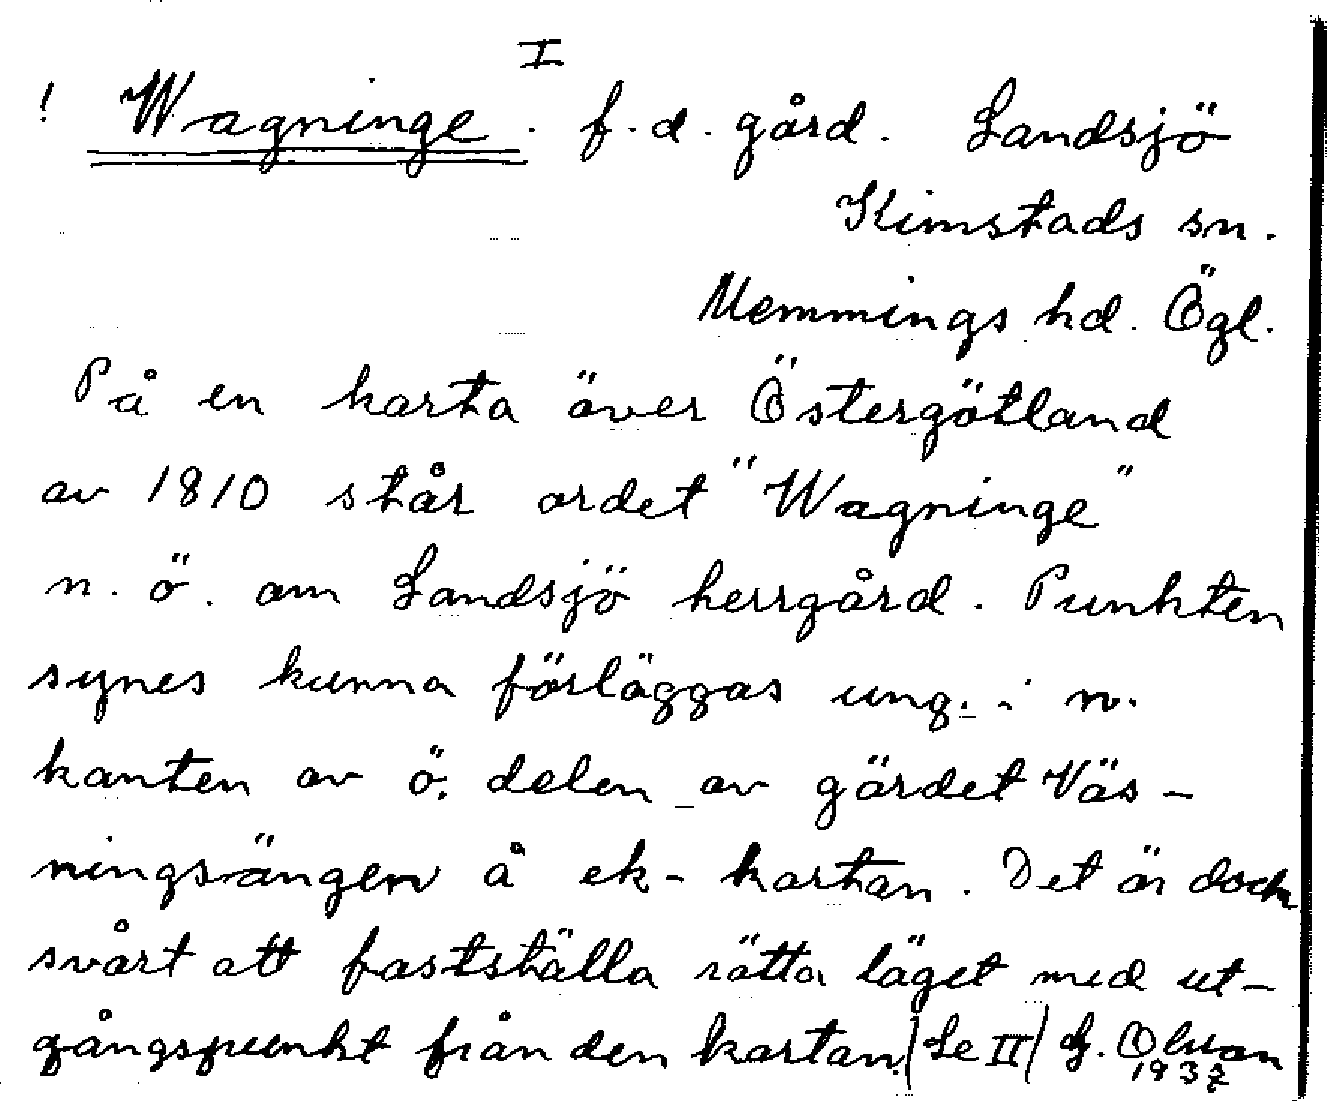 I
! Wagninge. f.d. gård. Landsjö
Kimstads sn.
Memmings hd. Ögl.
På en karta över Östergötland
av 1810 står ordet "Wagninge"
n.ö. om Landsjö herrgård. Punkten
synes kunna förläggas ung. i n.
kanten av ö. delen av gärdet Väs-
ningsängen å ek-kartan. Det är dock
svårt att fastställa rätta läget med ut-
gångspunkt från den kartan. (Se II) G. Olsson
1937